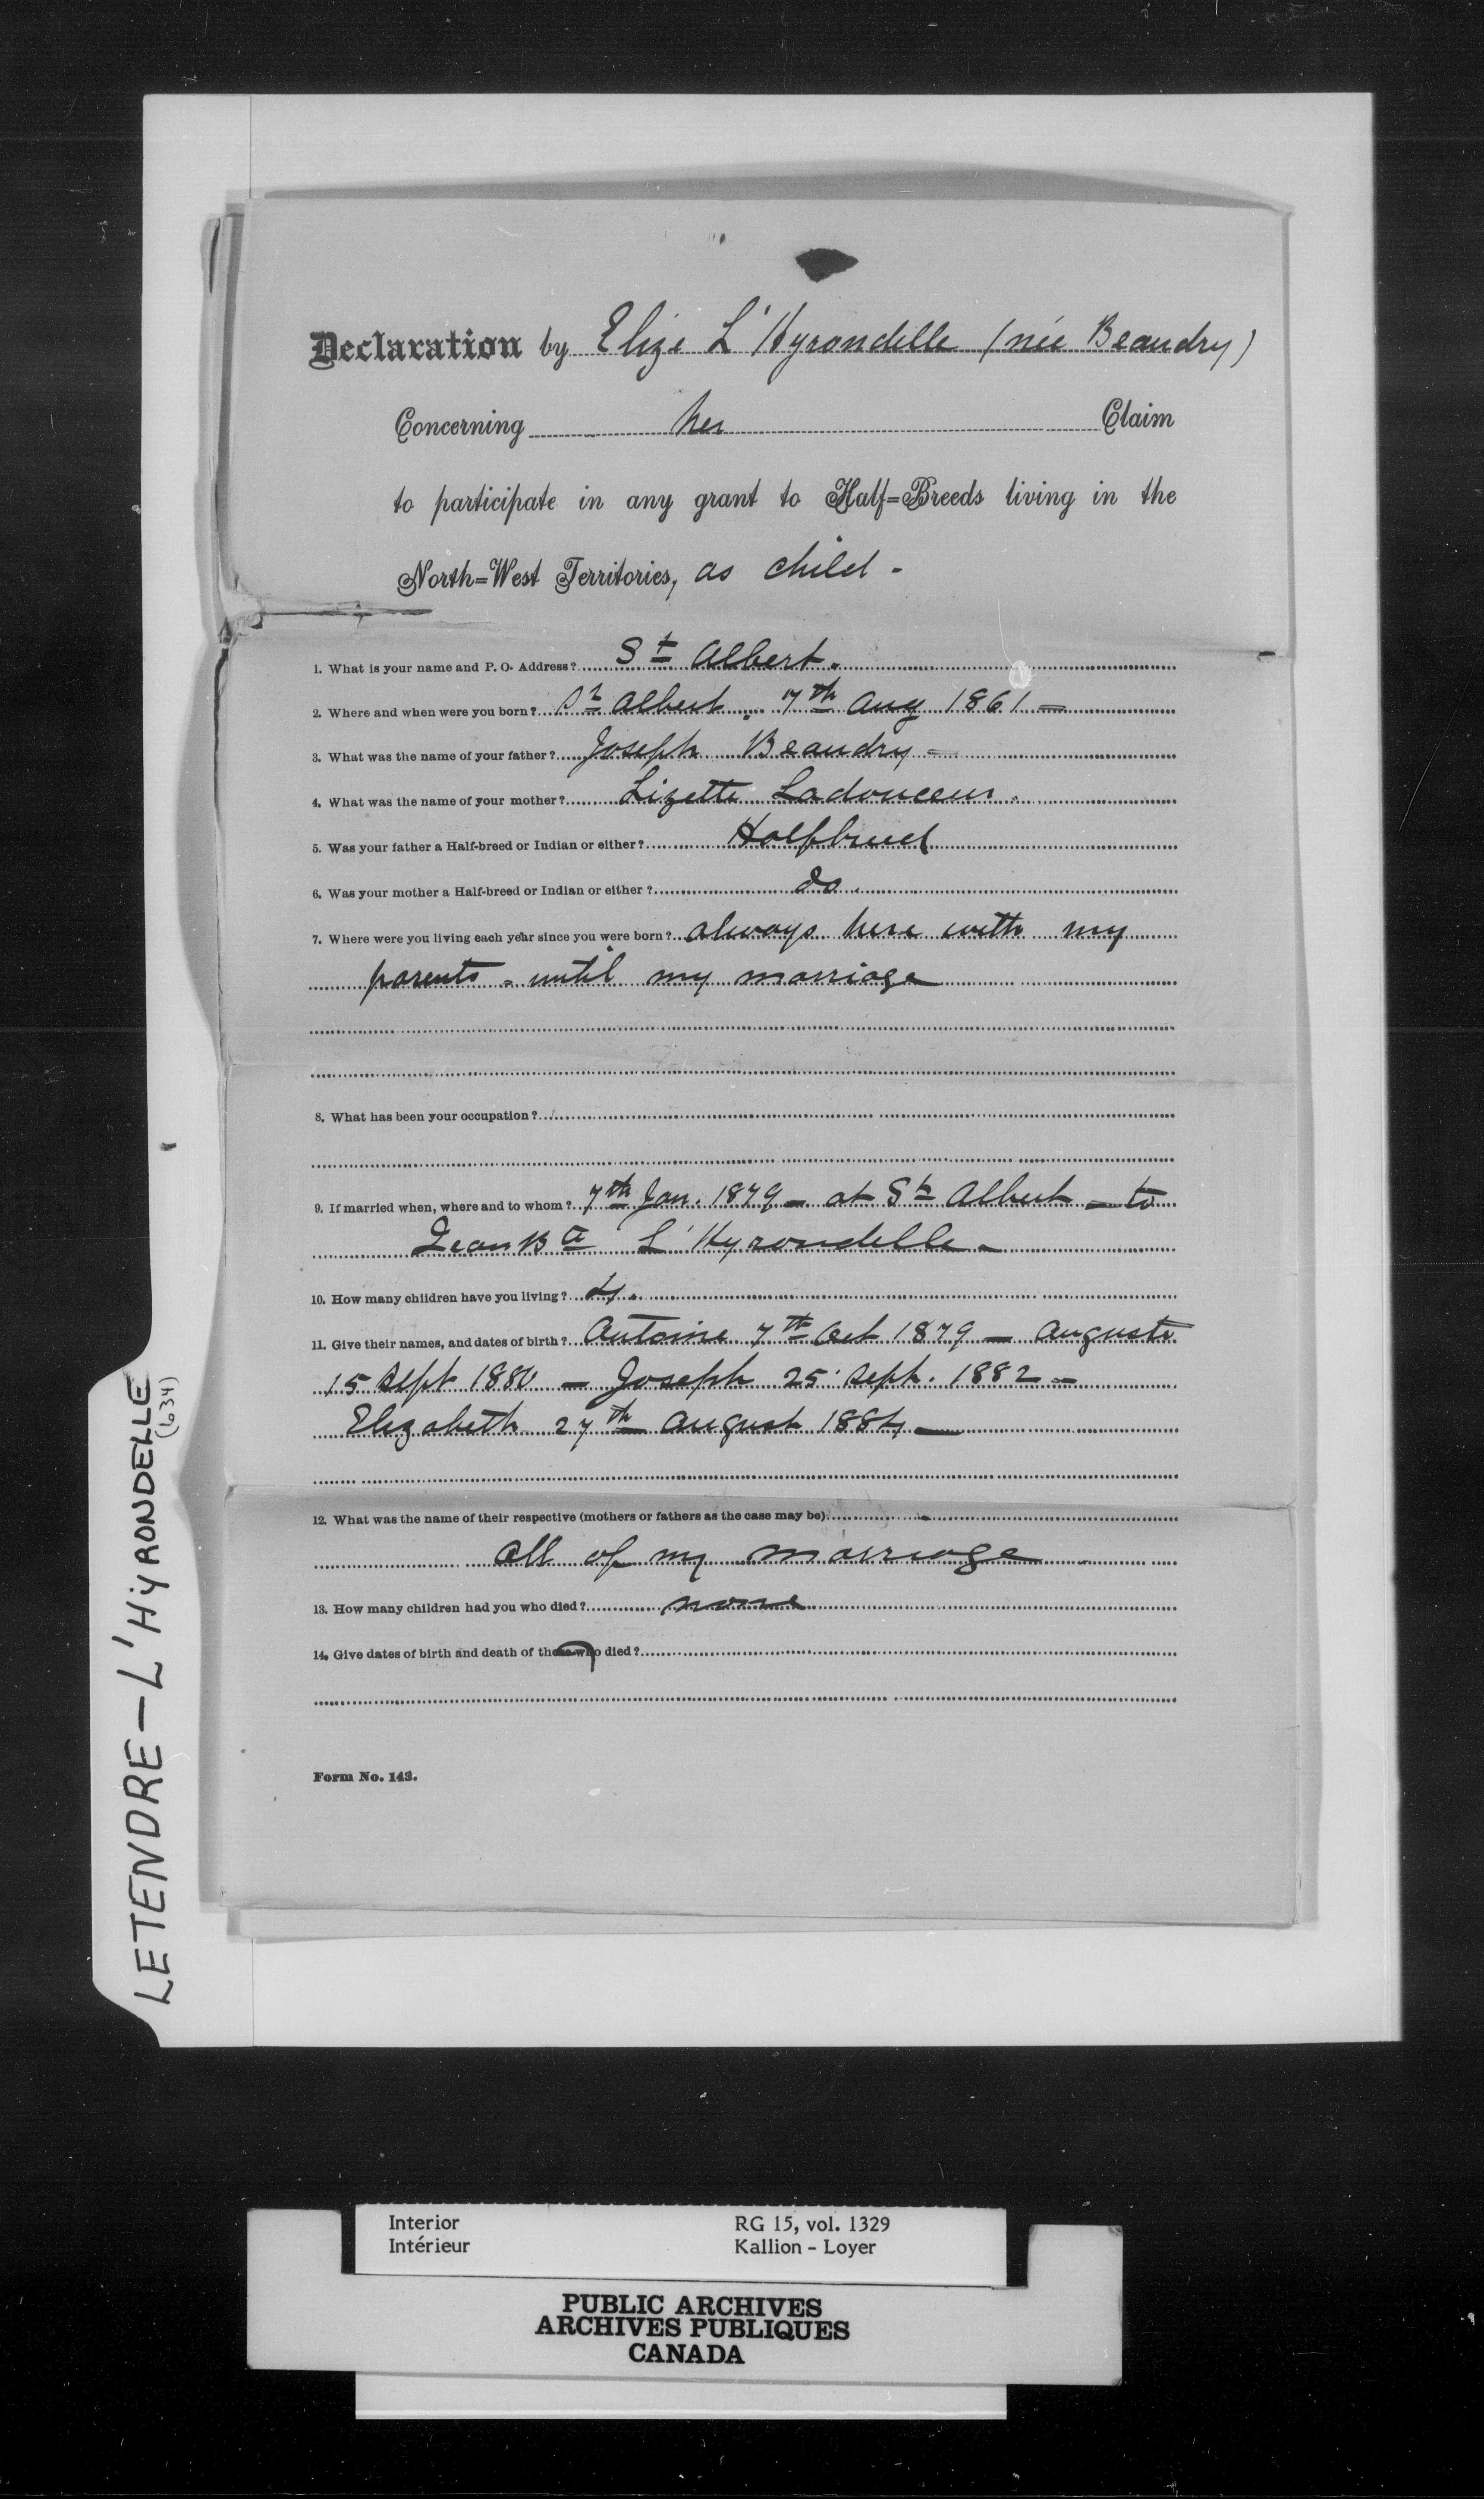 Declaration by Elize L'Hyrondelle (née Beaudry)
Concerning her Claim
to participate in any grant to Half=Breeds living in the
North=West Territories, as child -
1. What is your name and P. O. Address? St Albert.
2. Where and when were you born? St Albert. 7th Aug 1861 -
3. What was the name of your father? Joseph Beaudry -
4. What was the name of your mother? Lizette Ladouceur.
5. Was your father a Half-breed or Indian or either? Halfbreed
6. Was your mother a Half-breed or Indian or either? do.
7. Where were you living each year since you were born? always here with my
parents - until my marriage
8. What has been your occupation?
9. If married when, where and to whom? 7th Jan. 1879 - at St Albert - to
Jean Bte L'Hyrondelle -
10. How many children have you living? 4.
11. Give their names, and dates of birth? Antoine 7th Oct 1879 - Auguste
15 Sept 1880 - Joseph 25 Sept. 1882 -
Elizabeth 27th August 1884 -
12. What was the name of their respective (mothers or fathers as the case may be)
All of my marriage
13. How many children had you who died? none
14. Give dates of birth and death of those who died?
Form No. 143.
LETENDRE - L'HYRONDELLE
(634)
Interior RG 15, vol. 1329
Intérieur Kallion - Loyer
PUBLIC ARCHIVES
ARCHIVES PUBLIQUES
CANADA